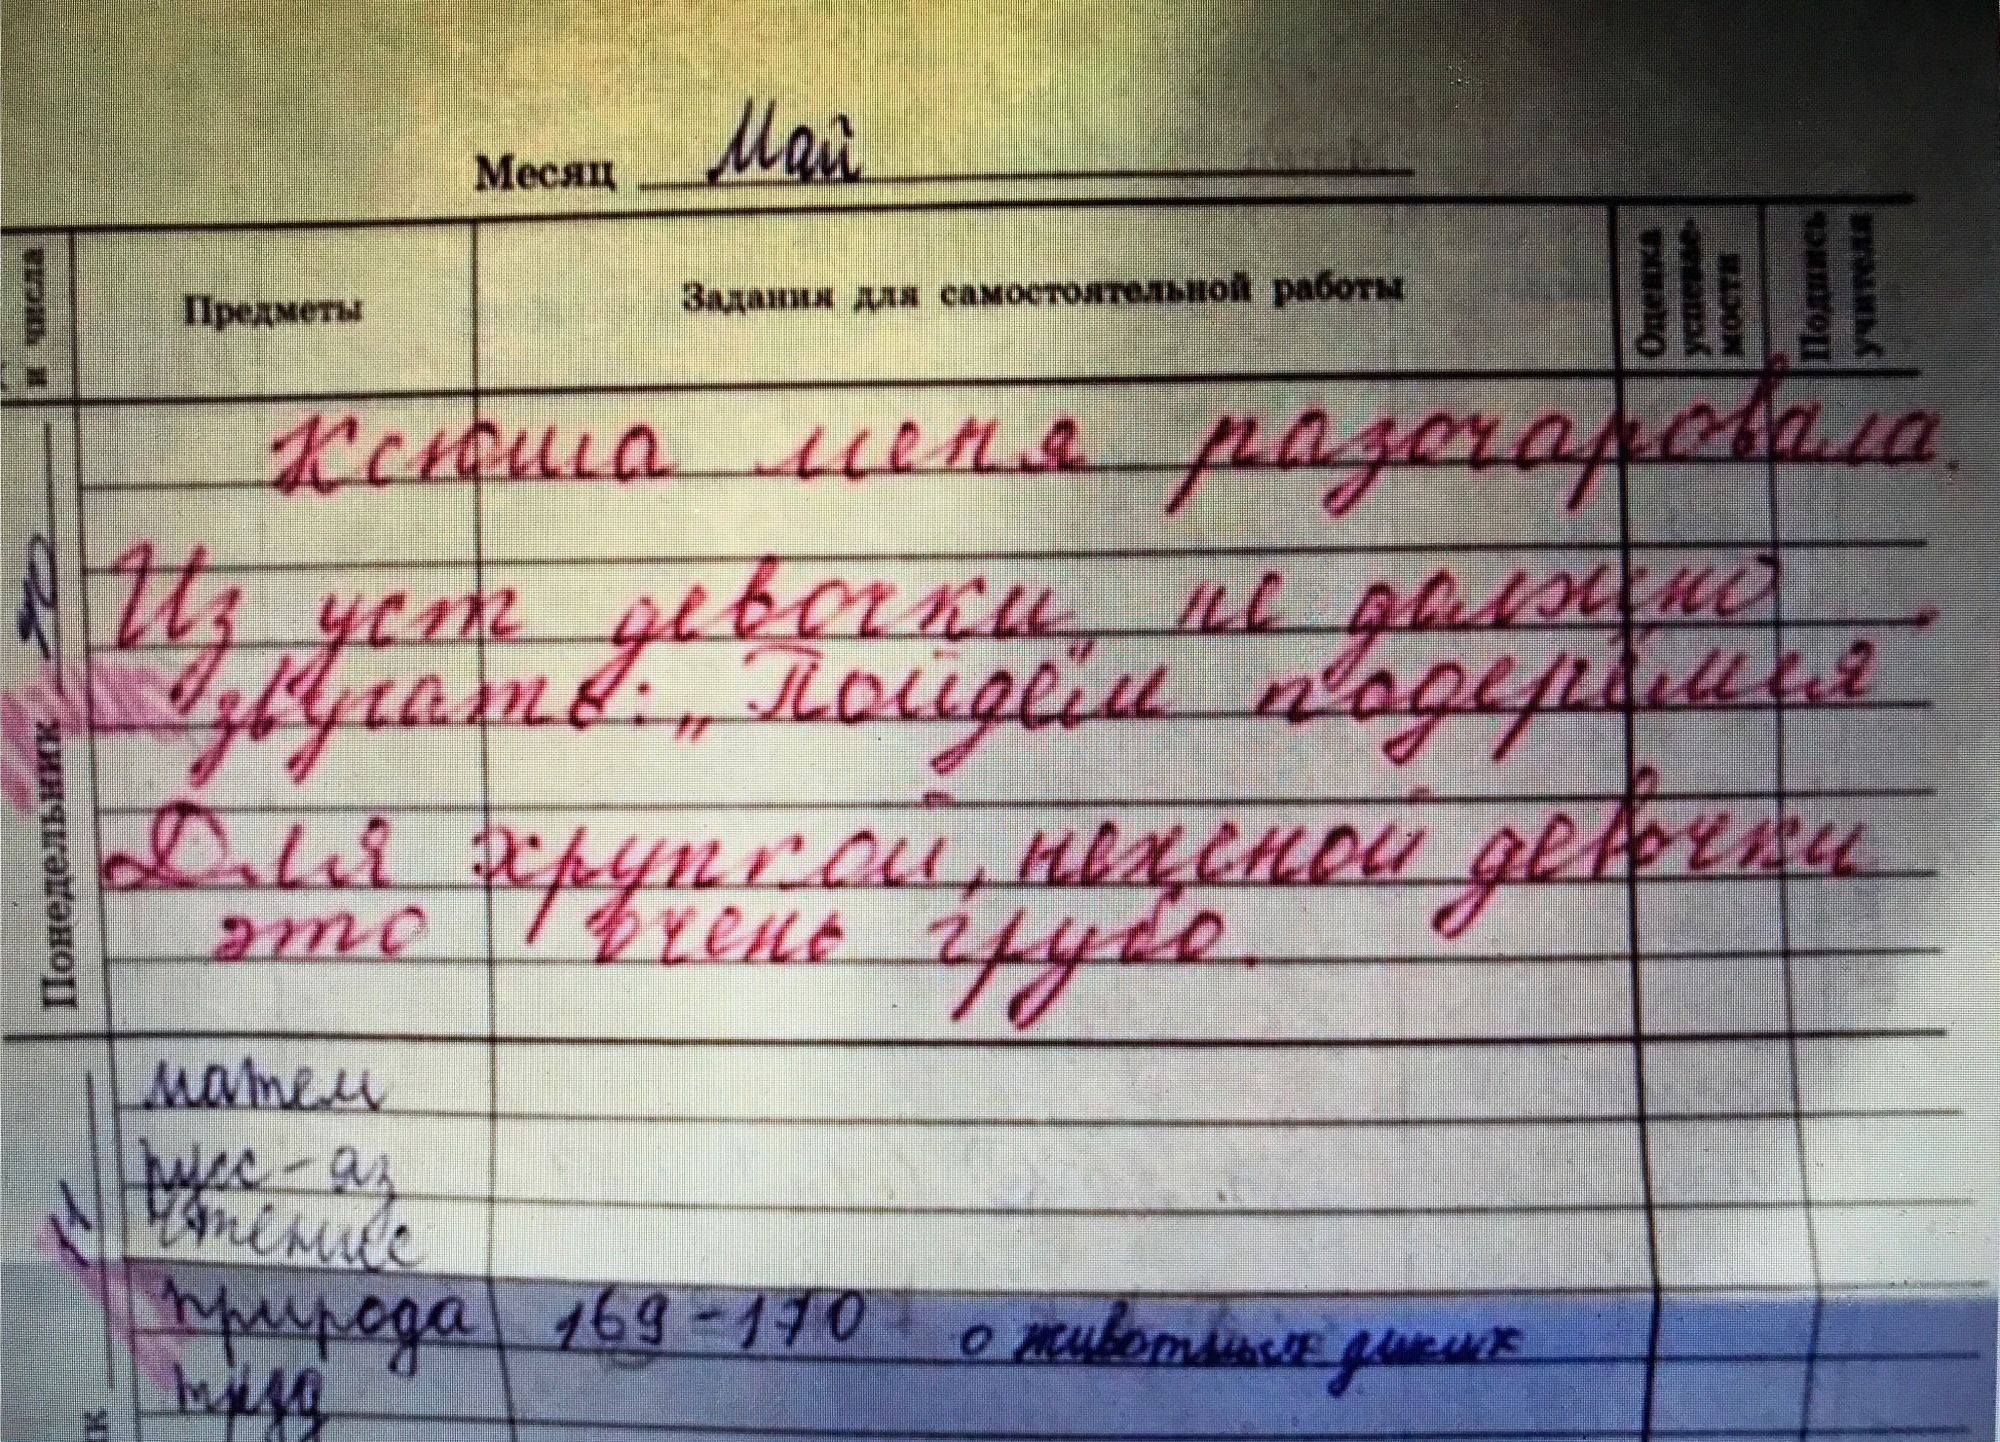 Месяц Май
и числа
Предметы
Задания для самостоятельной работы
Оценка успевае-
мости
Подпись учителя
Понедельник
Ксюша меня разочаровала.
Из уст девочки не должно
звучать: „Пойдём подерёмся"
Для хрупкой, нежной девочки
это очень грубо.
матем
русс-яз
чтение
11
природа 169-170 о животных диких
труд
ик